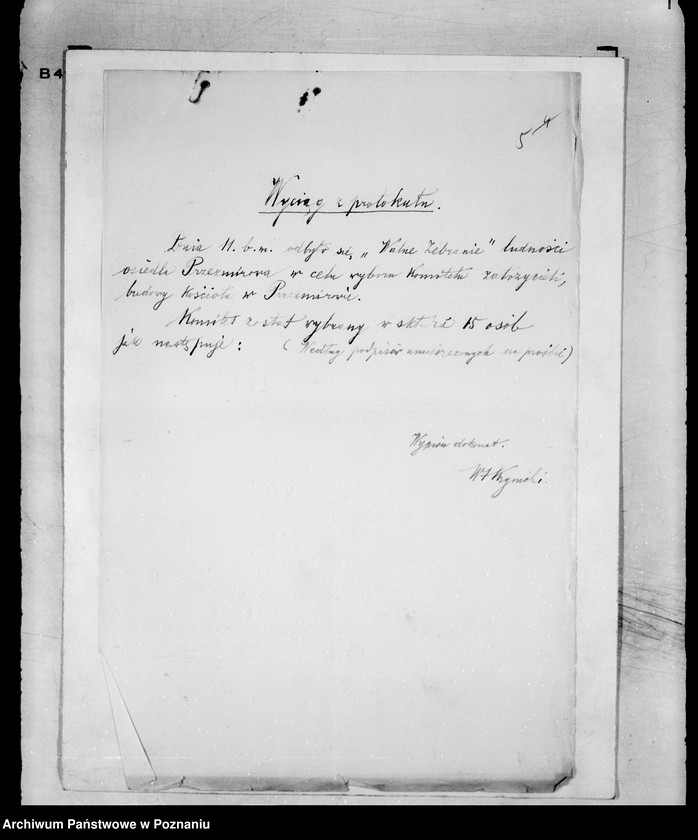 B4
5 4
Wyciąg z protokułu.
Dnia 11. b.m. odbyło się „Walne Zebranie" ludności
osiedla Przezmirowa w celu wyboru Komitetu założycieli,
budowy Kościoła w Przezmirowie.
Komitet został wybrany w składzie 15 osób
jak następuje: (Według podpisów umieszczonych na prośbie)
Wypisu dokonał.
Archiwum Państwowe w Poznaniu